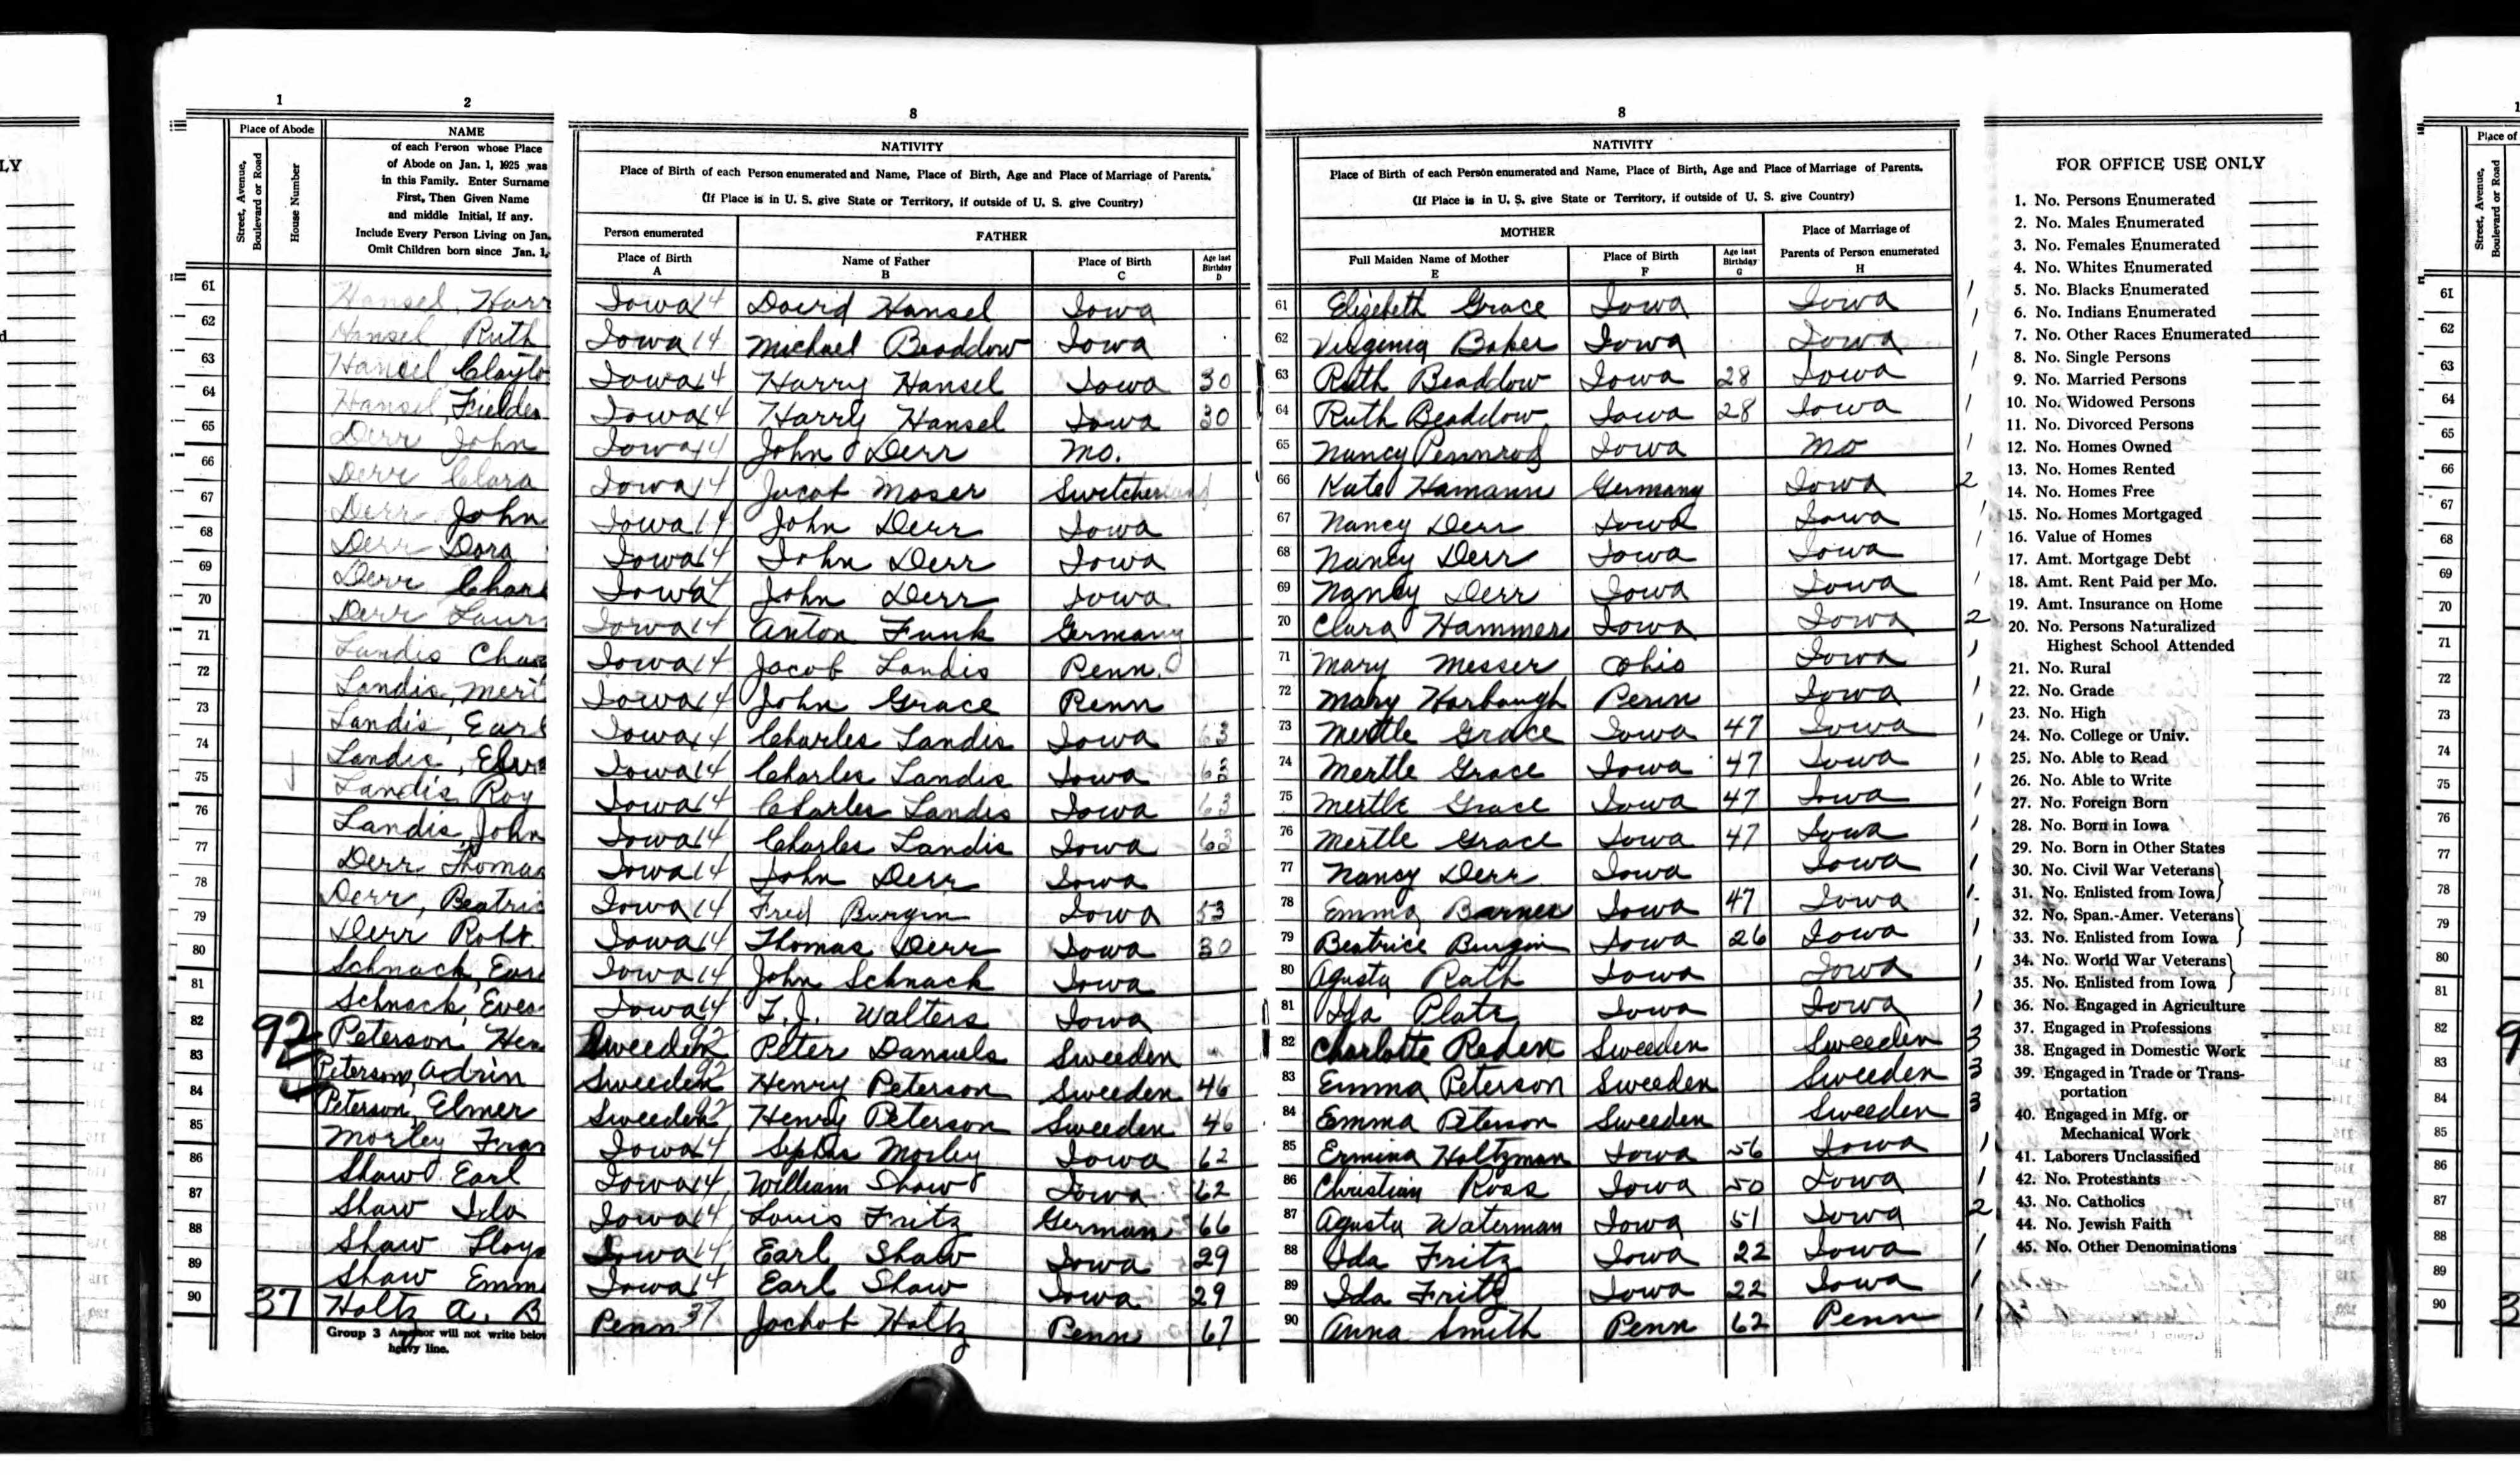 LY
1 2 8 8 1
Place of Abode
Street, Avenue, Boulevard or Road
House Number
NAME
of each Person whose Place
of Abode on Jan. 1, 1925 was
in this Family. Enter Surname
First, Then Given Name
and middle Initial, If any.
Include Every Person Living on Jan.
Omit Children born since Jan. 1,
NATIVITY
Place of Birth of each Person enumerated and Name, Place of Birth, Age and Place of Marriage of Parents.
(If Place is in U. S. give State or Territory, if outside of U. S. give Country)
Person enumerated
Place of Birth
A
FATHER
Name of Father
B
Place of Birth
C
Age last Birthday
D
NATIVITY
Place of Birth of each Person enumerated and Name, Place of Birth, Age and Place of Marriage of Parents.
(If Place is in U. S. give State or Territory, if outside of U. S. give Country)
MOTHER
Full Maiden Name of Mother
E
Place of Birth
F
Age last Birthday
G
Place of Marriage of
Parents of Person enumerated
H
61 Hansel, Harr Iowa 14 David Hansel Iowa 61 Elizebeth Grace Iowa Iowa 1
62 Hansel Ruth Iowa 14 Michael Beaddow Iowa 62 Virginia Baker Iowa Iowa 1
63 Hansel Clayto Iowa 14 Harry Hansel Iowa 30 63 Ruth Beaddow Iowa 28 Iowa 1
64 Hansel, Fielden Iowa 14 Harry Hansel Iowa 30 64 Ruth Beaddow Iowa 28 Iowa 1
65 Derr John Iowa 14 John Derr Mo. 65 Nancy Pennrod Iowa Mo 1
66 Derr Clara Iowa 14 Jacob Moser Switcherland 66 Kate Hamann Germany Iowa 2
67 Derr John Iowa 14 John Derr Iowa 67 Nancy Derr Iowa Iowa 1
68 Derr Dora Iowa 14 John Derr Iowa 68 Nancy Derr Iowa Iowa 1
69 Derr Charl Iowa 14 John Derr Iowa 69 Nancy Derr Iowa Iowa 1
70 Derr Laur Iowa 14 Anton Funk Germany 70 Clara Hammer Iowa Iowa 2
71 Landis Chas Iowa 14 Jacob Landis Penn. 71 Mary Messer Ohio Iowa 1
72 Landis, Mert Iowa 14 John Grace Penn 72 Mary Harbaugh Penn Iowa 1
73 Landis, Earl Iowa 14 Charles Landis Iowa 63 73 Mertle Grace Iowa 47 Iowa 1
74 Landis, Iowa 14 Charles Landis Iowa 63 74 Mertle Grace Iowa 47 Iowa 1
75 Landis Roy Iowa 14 Charles Landis Iowa 63 75 Mertle Grace Iowa 47 Iowa 1
76 Landis, John Iowa 14 Charles Landis Iowa 63 76 Mertle Grace Iowa 47 Iowa 1
77 Derr Thomas Iowa 14 John Derr Iowa 77 Nancy Derr Iowa Iowa 1
78 Derr, Beatric Iowa 14 Fred Burgin Iowa 53 78 Emma Barnes Iowa 47 Iowa 1
79 Derr Robt. Iowa 14 Thomas Derr Iowa 30 79 Beatrice Burgin Iowa 26 Iowa 1
80 Schnack, Earl Iowa 14 John Schnack Iowa 80 Agusta Rath Iowa Iowa 1
81 Schnack, Eves Iowa 14 T. J. Walters Iowa 81 Ida Platz Iowa Iowa 1
82 92 Peterson, Hen Sweeden 92 Peter Danuels Sweeden 82 Charlotte Reden Sweeden Sweeden 3
83 Peterson, Adrin Sweeden 92 Henry Peterson Sweeden 46 83 Emma Peterson Sweeden Sweeden 3
84 Peterson, Elmer Sweeden 92 Henry Peterson Sweeden 46 84 Emma Peterson Sweeden Sweeden 3
85 Morley Fran Iowa 14 Morley Iowa 62 85 Ermina Holtzman Iowa 56 Iowa 1
86 Shaw Earl Iowa 14 William Shaw Iowa 62 86 Christian Ross Iowa 50 Iowa 1
87 Shaw Ida Iowa 14 Louis Fritz German 66 87 Agusta Waterman Iowa 51 Iowa 2
88 Shaw Lloyd Iowa 14 Earl Shaw Iowa 29 88 Ida Fritz Iowa 22 Iowa 1
89 Shaw Emm Iowa 14 Earl Shaw Iowa 29 89 Ida Fritz Iowa 22 Iowa 1
90 37 Holtz A. B Penn 37 Jachob Holtz Penn 67 90 Anna Smith Penn 62 Penn 1
Group 3 Assessor will not write below
heavy line.
FOR OFFICE USE ONLY
1. No. Persons Enumerated
2. No. Males Enumerated
3. No. Females Enumerated
4. No. Whites Enumerated
5. No. Blacks Enumerated
6. No. Indians Enumerated
7. No. Other Races Enumerated
8. No. Single Persons
9. No. Married Persons
10. No. Widowed Persons
11. No. Divorced Persons
12. No. Homes Owned
13. No. Homes Rented
14. No. Homes Free
15. No. Homes Mortgaged
16. Value of Homes
17. Amt. Mortgage Debt
18. Amt. Rent Paid per Mo.
19. Amt. Insurance on Home
20. No. Persons Naturalized
Highest School Attended
21. No. Rural
22. No. Grade
23. No. High
24. No. College or Univ.
25. No. Able to Read
26. No. Able to Write
27. No. Foreign Born
28. No. Born in Iowa
29. No. Born in Other States
30. No. Civil War Veterans
31. No. Enlisted from Iowa
32. No. Span.-Amer. Veterans
33. No. Enlisted from Iowa
34. No. World War Veterans
35. No. Enlisted from Iowa
36. No. Engaged in Agriculture
37. Engaged in Professions
38. Engaged in Domestic Work
39. Engaged in Trade or Trans-
portation
40. Engaged in Mfg. or
Mechanical Work
41. Laborers Unclassified
42. No. Protestants
43. No. Catholics
44. No. Jewish Faith
45. No. Other Denominations
Place of
Street, Avenue, Boulevard or Road
61
62
63
64
65
66
67
68
69
70
71
72
73
74
75
76
77
78
79
80
81
82
83
84
85
86
87
88
89
90